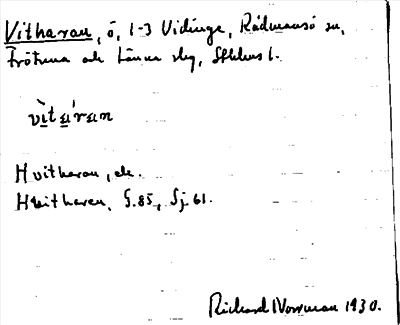 Vitharan, ö, 1-3 Vidinge, Rådmansö sn,
Frötuna och Länna skg, Sthlms l.
vìtáran
Hvitharan, ek.
Hvitharen, G.85, Sj. 61.
Richard Norrman 1930.